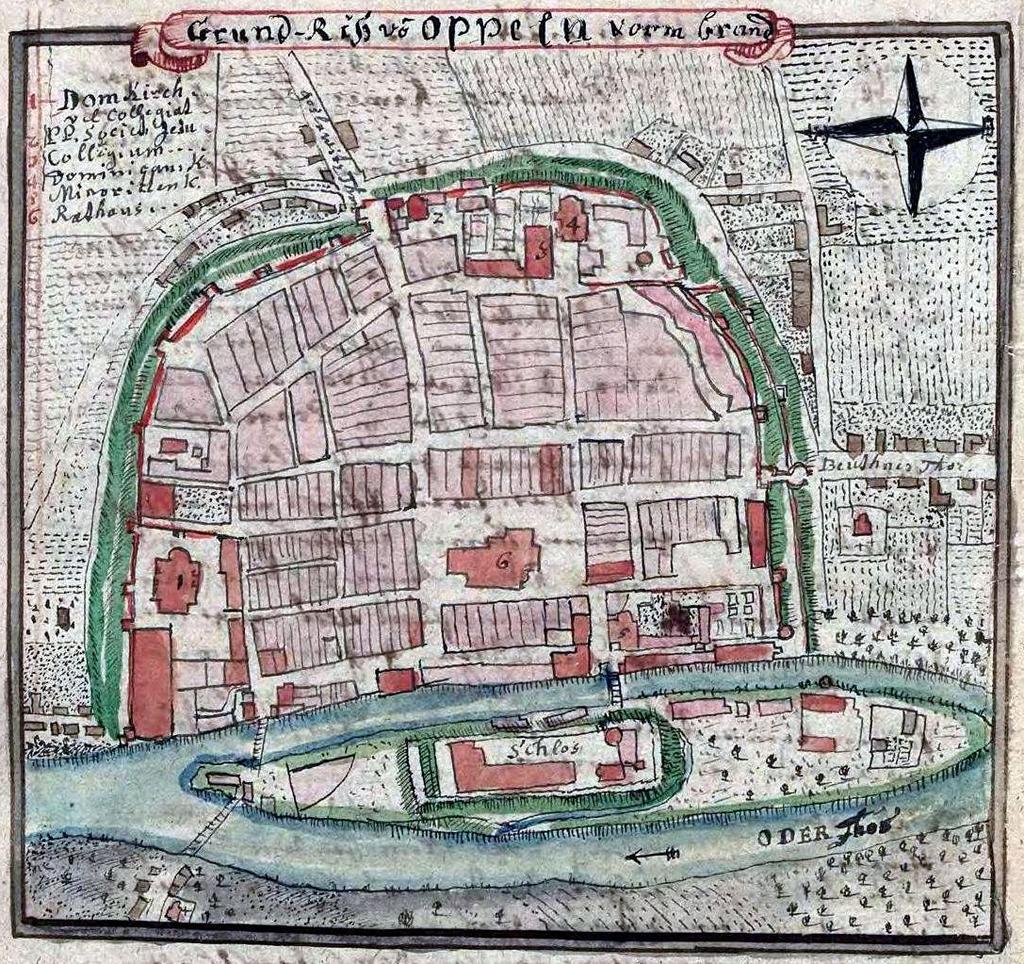 Grund-Riß võ Oppeln vorm brand
1 Dom Kirch
vel Collegiat
2 PP. Societ: Jesu
3 Collegium
4 Dominican: K
5 Minoritten K.
6 Rathaus
Thor
2
4
3
Beuthner Thor
1
6
5
Schlos
ODER Thor